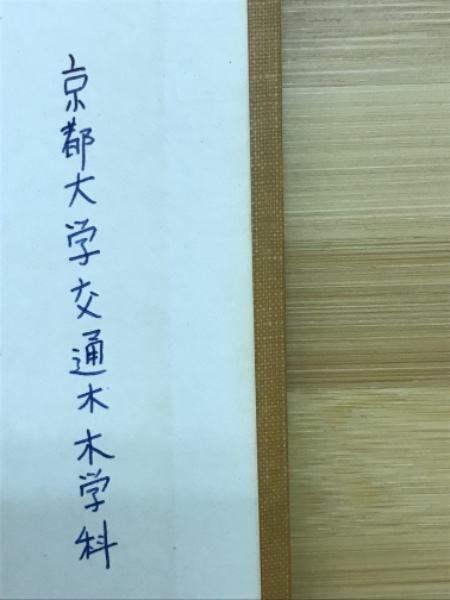 京都大学交通木木学科